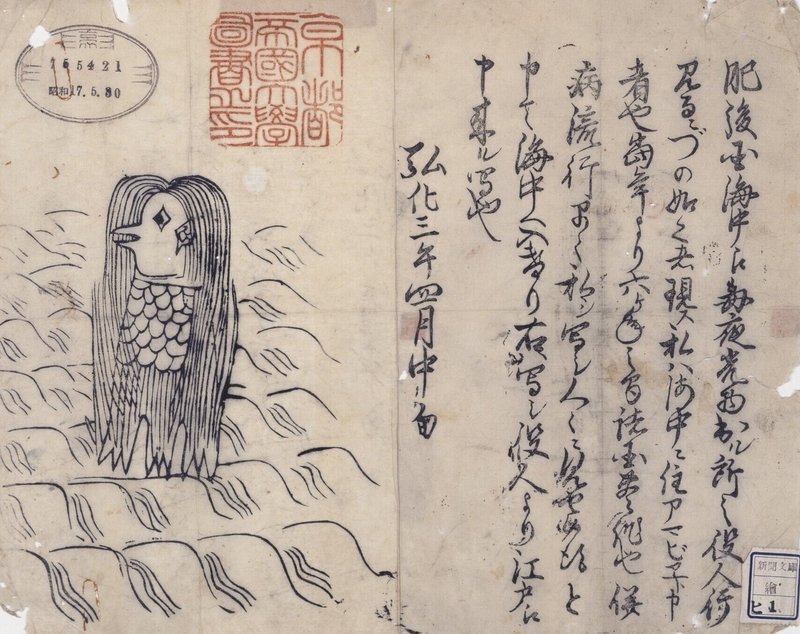 肥後国海中江毎夜光物出ル所之役人行
見るニづの如之者現ス私ハ海中ニ住アマビヱト申
者也當年より六ヶ年之間諸国豊作也併
病流行早々私シ写シ人々ニ見セ候得と
申て海中へ入けり右写シ役人より江戸江
申来ル写也
弘化三年四月中旬
京都
帝國大學
圖書之印
165421
昭和17.5.30
新聞文庫
繪
ヒ 1